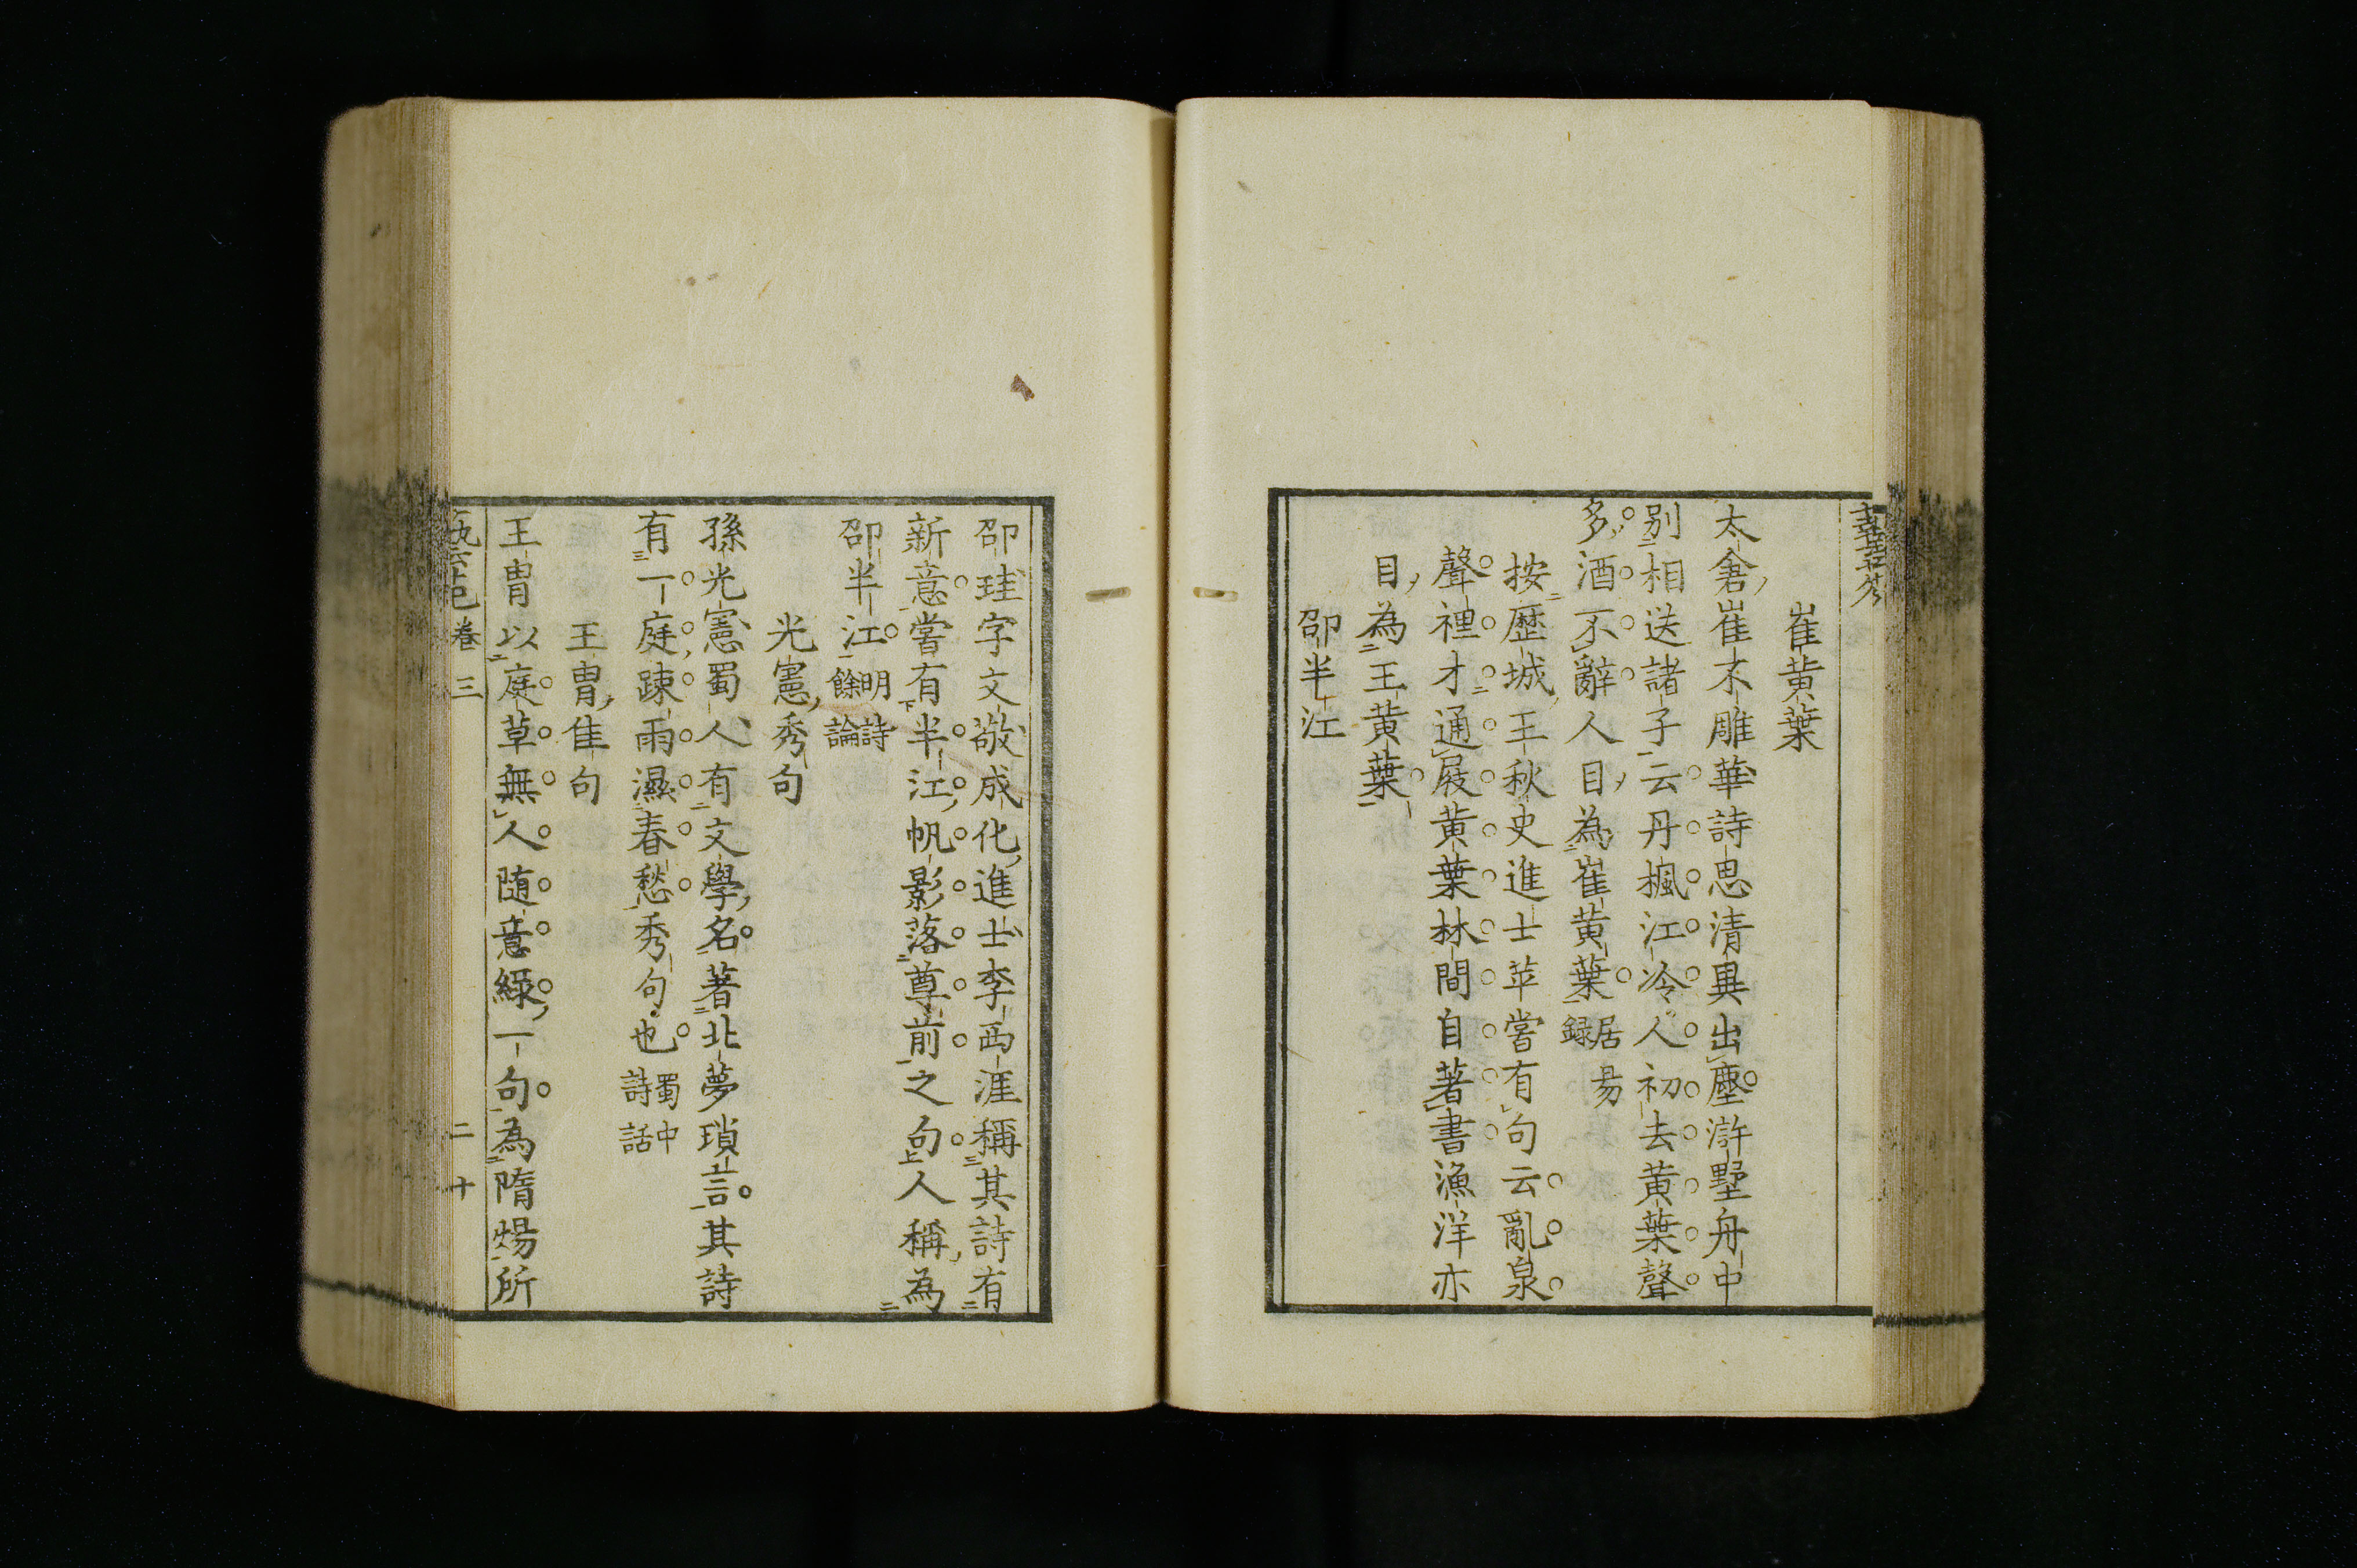 崔黄葉
太倉崔不雕華詩思清異出塵滸墅舟中
别相送諸子云丹楓江冷人初去黄葉聲
多酒不辭人目為崔黄葉居易録
按歷城王秋史進士苹嘗有句云亂泉
聲裡才通屐黄葉林間自著書漁洋亦
目為王黄葉
邵半江
邵珪字文敬成化進士李西涯稱其詩有
新意嘗有半江帆影落尊前之句人稱為
邵半江明詩餘論
光憲秀句
孫光憲蜀人有文學名著北夢瑣言其詩
有一庭踈雨濕春愁秀句也蜀中詩話
王冑隹句
王冑以庭草無人随意緑一句為隋煬所
卷三
二十